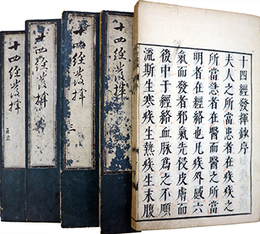 十四經發揮鈔序
夫人之所當患者在疾疾之
所當急者在醫而醫之所當
明者在經絡也凡疾外感六
氣而發者邪氣先侵皮膚而
次中于經絡血脉爲之不順
流斯生寒疾生熱疾生末腹
十四經發揮
三
十四經發揮
十四經發揮
十四經發揮